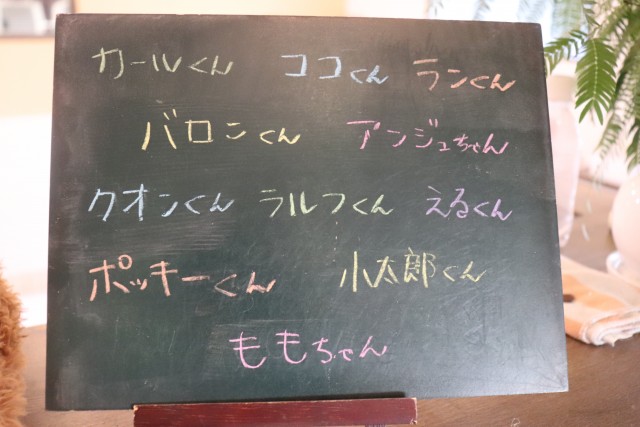 カールくん ココくん ランくん
バロンくん アンジュちゃん
クオンくん ラルフくん えるくん
ポッキーくん 小太郎くん
ももちゃん